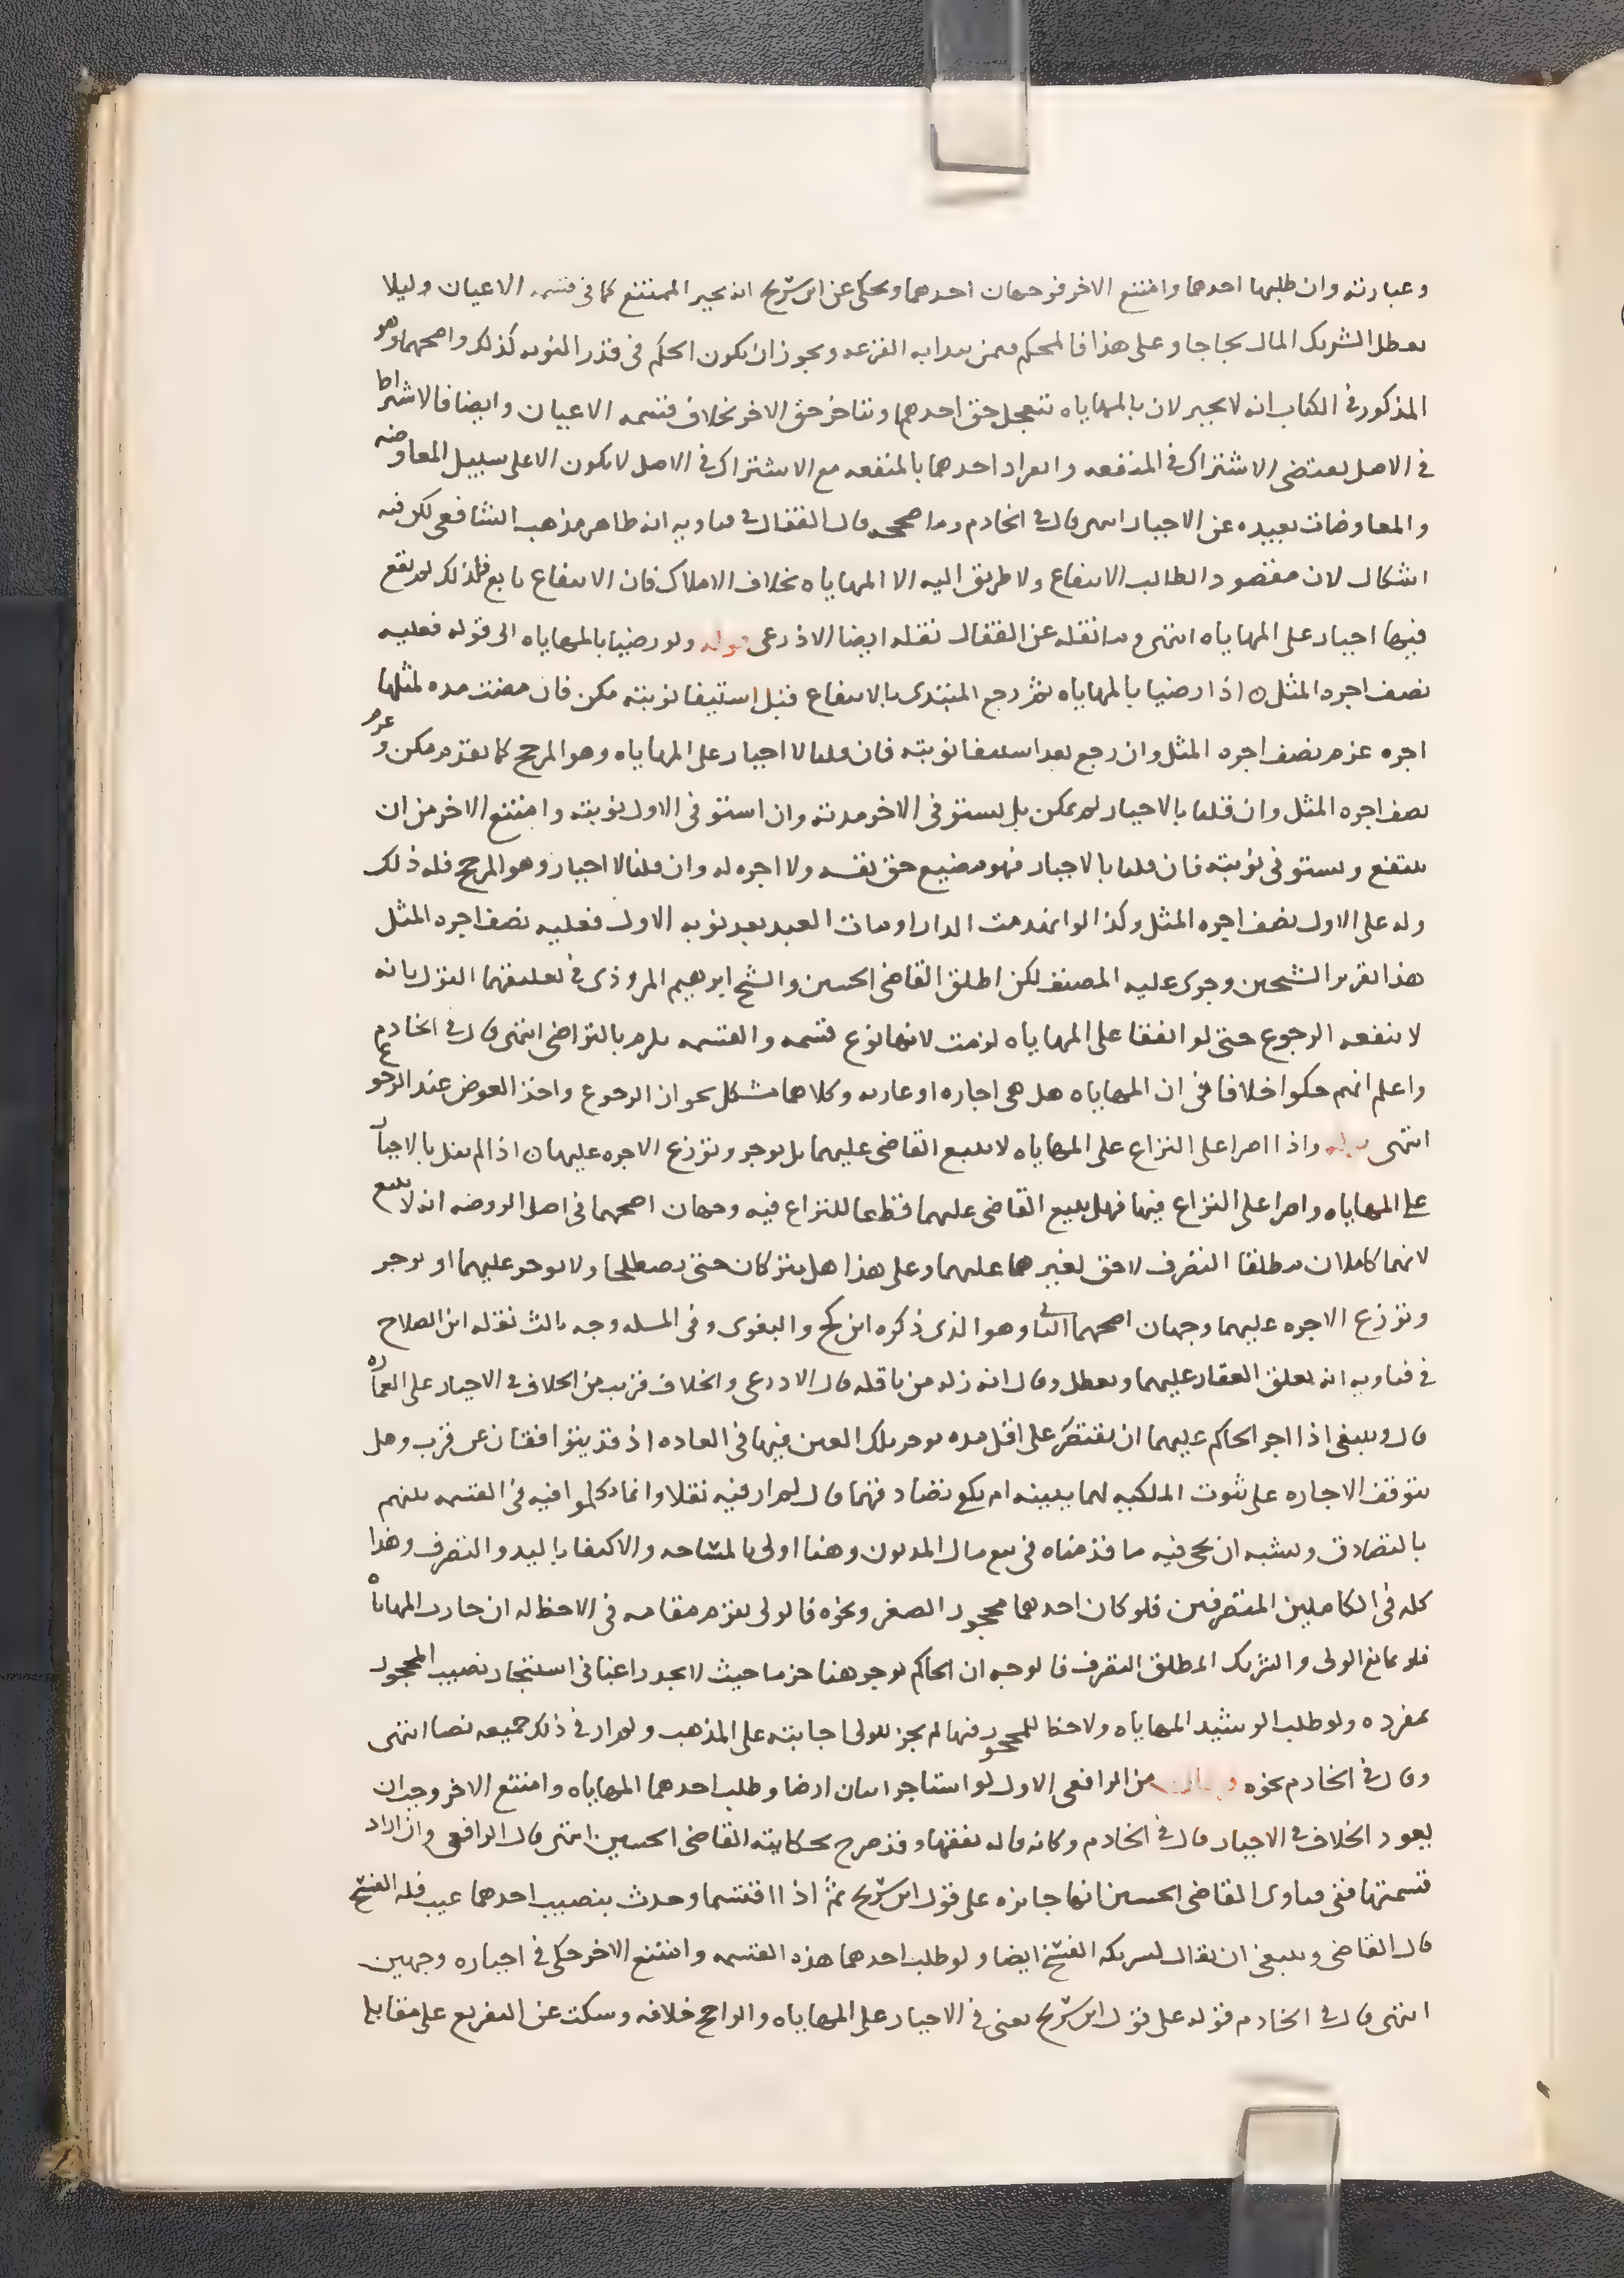 وعبارته وان طلبها احدهما وامتنع الاخر فوجهان احدهما ويحكى عن ابن سريج انه يجبر الممتنع كما في قسمه الاعيان وليلا
يعطل الشريك المال لجاجا وعلى هذا فالمحكم فيمن يبدا به القرعه ويجوز ان يكون الحكم في قدر النوبه كذلك واصحهما وهو
المذكور في الكتاب انه لا يجبر لان بالمهاياه يتعجل حق احدهما ويتاخر حق الاخر بخلاف قسمه الاعيان وايضا فالاشتراط
في الاصل يقتضي الاشتراك في المنفعه وانفراد احدهما بالمنفعه مع الاشتراك في الاصل لا يكون الا على سبيل المعاوضه
والمعاوضات بعيده عن الاجبار انتهى قال في الخادم وما صححه قال القفال في فتاويه انه ظاهر مذهب الشافعي لكن فيه
اشكال لان مقصود الطالب الانتفاع ولا طريق اليه الا المهاياه بخلاف الاملاك فان الانتفاع تابع فلذلك لم يقع
فيها اجبار على المهاياه انتهى وما نقله عن القفال نقله ايضا الاذرعي قوله ولو رضيا بالمهاياه الى قوله فعليه
نصف اجره المثل ن اذا رضيا بالمهاياه ثم رجع المبتدي بالانتفاع قبل استيفا نوبته مكن فان مضت مده لمثلها
اجره غرم نصف اجره المثل وان رجع بعد استيفا نوبته فان قلنا لا اجبار على المهاياه وهو المرجح كما تقدم مكن وغرم
نصف اجره المثل وان قلنا بالاجبار لم يمكن بل يستوفي الاخر مدته وان استوفى الاول نوبته وامتنع الاخر من ان
ينتفع ويستوفي نوبته فان قلنا بالاجبار فهو مضيع حق نفسه ولا اجره له وان قلنا لا اجبار وهو المرجح فله ذلك
وله على الاول نصف اجره المثل وكذا لو انهدمت الدار او مات العبد بعد نوبه الاول فعليه نصف اجره المثل
هذا تقرير الشيخين وجرى عليه المصنف لكن اطلق القاضي الحسين والشيخ ابرهيم المروذي في تعليقهما القول بانه
لا ينفعه الرجوع حتى لو اتفقا على المهاياه لزمت لانها نوع قسمه والقسمه تلزم بالتراضي انتهى قال في الخادم
واعلم انهم حكوا خلافا في ان المهاياه هل هي اجاره او عاريه وكلاهما مشكل بجواز الرجوع واخذ العوض عند الرجوع
انتهى قوله واذا اصرا على النزاع على المهاياه لا يبيع القاضي عليهما بل يوجر وتوزع الاجره عليهما ن اذا لم نقل بالاجبار
على المهاياه واصرا على النزاع فيها فهل يبيع القاضي عليهما قطعا للنزاع فيه وجهان اصحهما في اصل الروضه انه لا يبيع
لانهما كاملان مطلقا التصرف لا حق لغيرهما عليهما وعلى هذا هل يتركان حتى يصطلحا ولا يوجر عليهما او يوجر
وتوزع الاجره عليهما وجهان اصحهما الثاني وهو الذي ذكره ابن كج والبغوي وفي المسله وجه ثالث نقله ابن الصلاح
في فتاويه انه يغلق العقار عليهما ويعطل وقال انه زله من ناقله قال الاذرعي والخلاف قريب من الخلاف في الاجبار على العماره
قال وينبغي اذا اجر الحاكم عليهما ان يقتصر على اقل مده يوجر تلك العين فيها في العاده اذ قد يتوافقان عن قرب وهل
تتوقف الاجاره على ثبوت الملكيه لهما ببينه ام يكفي تصادقهما قال لم ار فيه نقلا وانما تكلموا فيه في القسمه بينهم
بالتصادق ويشبه ان يجي فيه ما قدمناه في بيع مال المديون وهنا اولى بالمشاحه والاكتفا باليد والتصرف وهذا
كله في الكاملين المتصرفين فلو كان احدهما محجور الصغر ونحوه فالولي يقوم مقامه في الاحظ له ان جازت المهاياه
فلو تمانع الولي والشريك المطلق التصرف فالوجه ان الحاكم يوجر هنا جزما حيث لا يجد راغبا في استيجار نصيب المحجور
بمفرده ولو طلب الرشيد المهاياه ولا حظ للمحجور فيها لم يجز للولي اجابته على المذهب ولم ار في ذلك جميعه نصا انتهى
وقال في الخادم نحوه من الرافعي الاول لو استاجر اثنان ارضا وطلب احدهما المهاياه وامتنع الاخر وجب ان
يعود الخلاف في الاجبار قال في الخادم وكانه قاله تفقها وقد صرح بحكايته القاضي الحسين انتهى قال الرافعي وان اراد
قسمتها ففي فتاوى القاضي الحسين انها جايزه على قول ابن سريج ثم اذا اقتسما وحدث بنصيب احدهما عيب فله الفسخ
قال القاضي وينبغي ان يقال لشريكه الفسخ ايضا ولو طلب احدهما هذه القسمه وامتنع الاخر حكى في اجباره وجهين
انتهى قال في الخادم قوله على قول ابن سريج يعني في الاجبار على المهاياه والراجح خلافه وسكت عن التفريع على مقابله